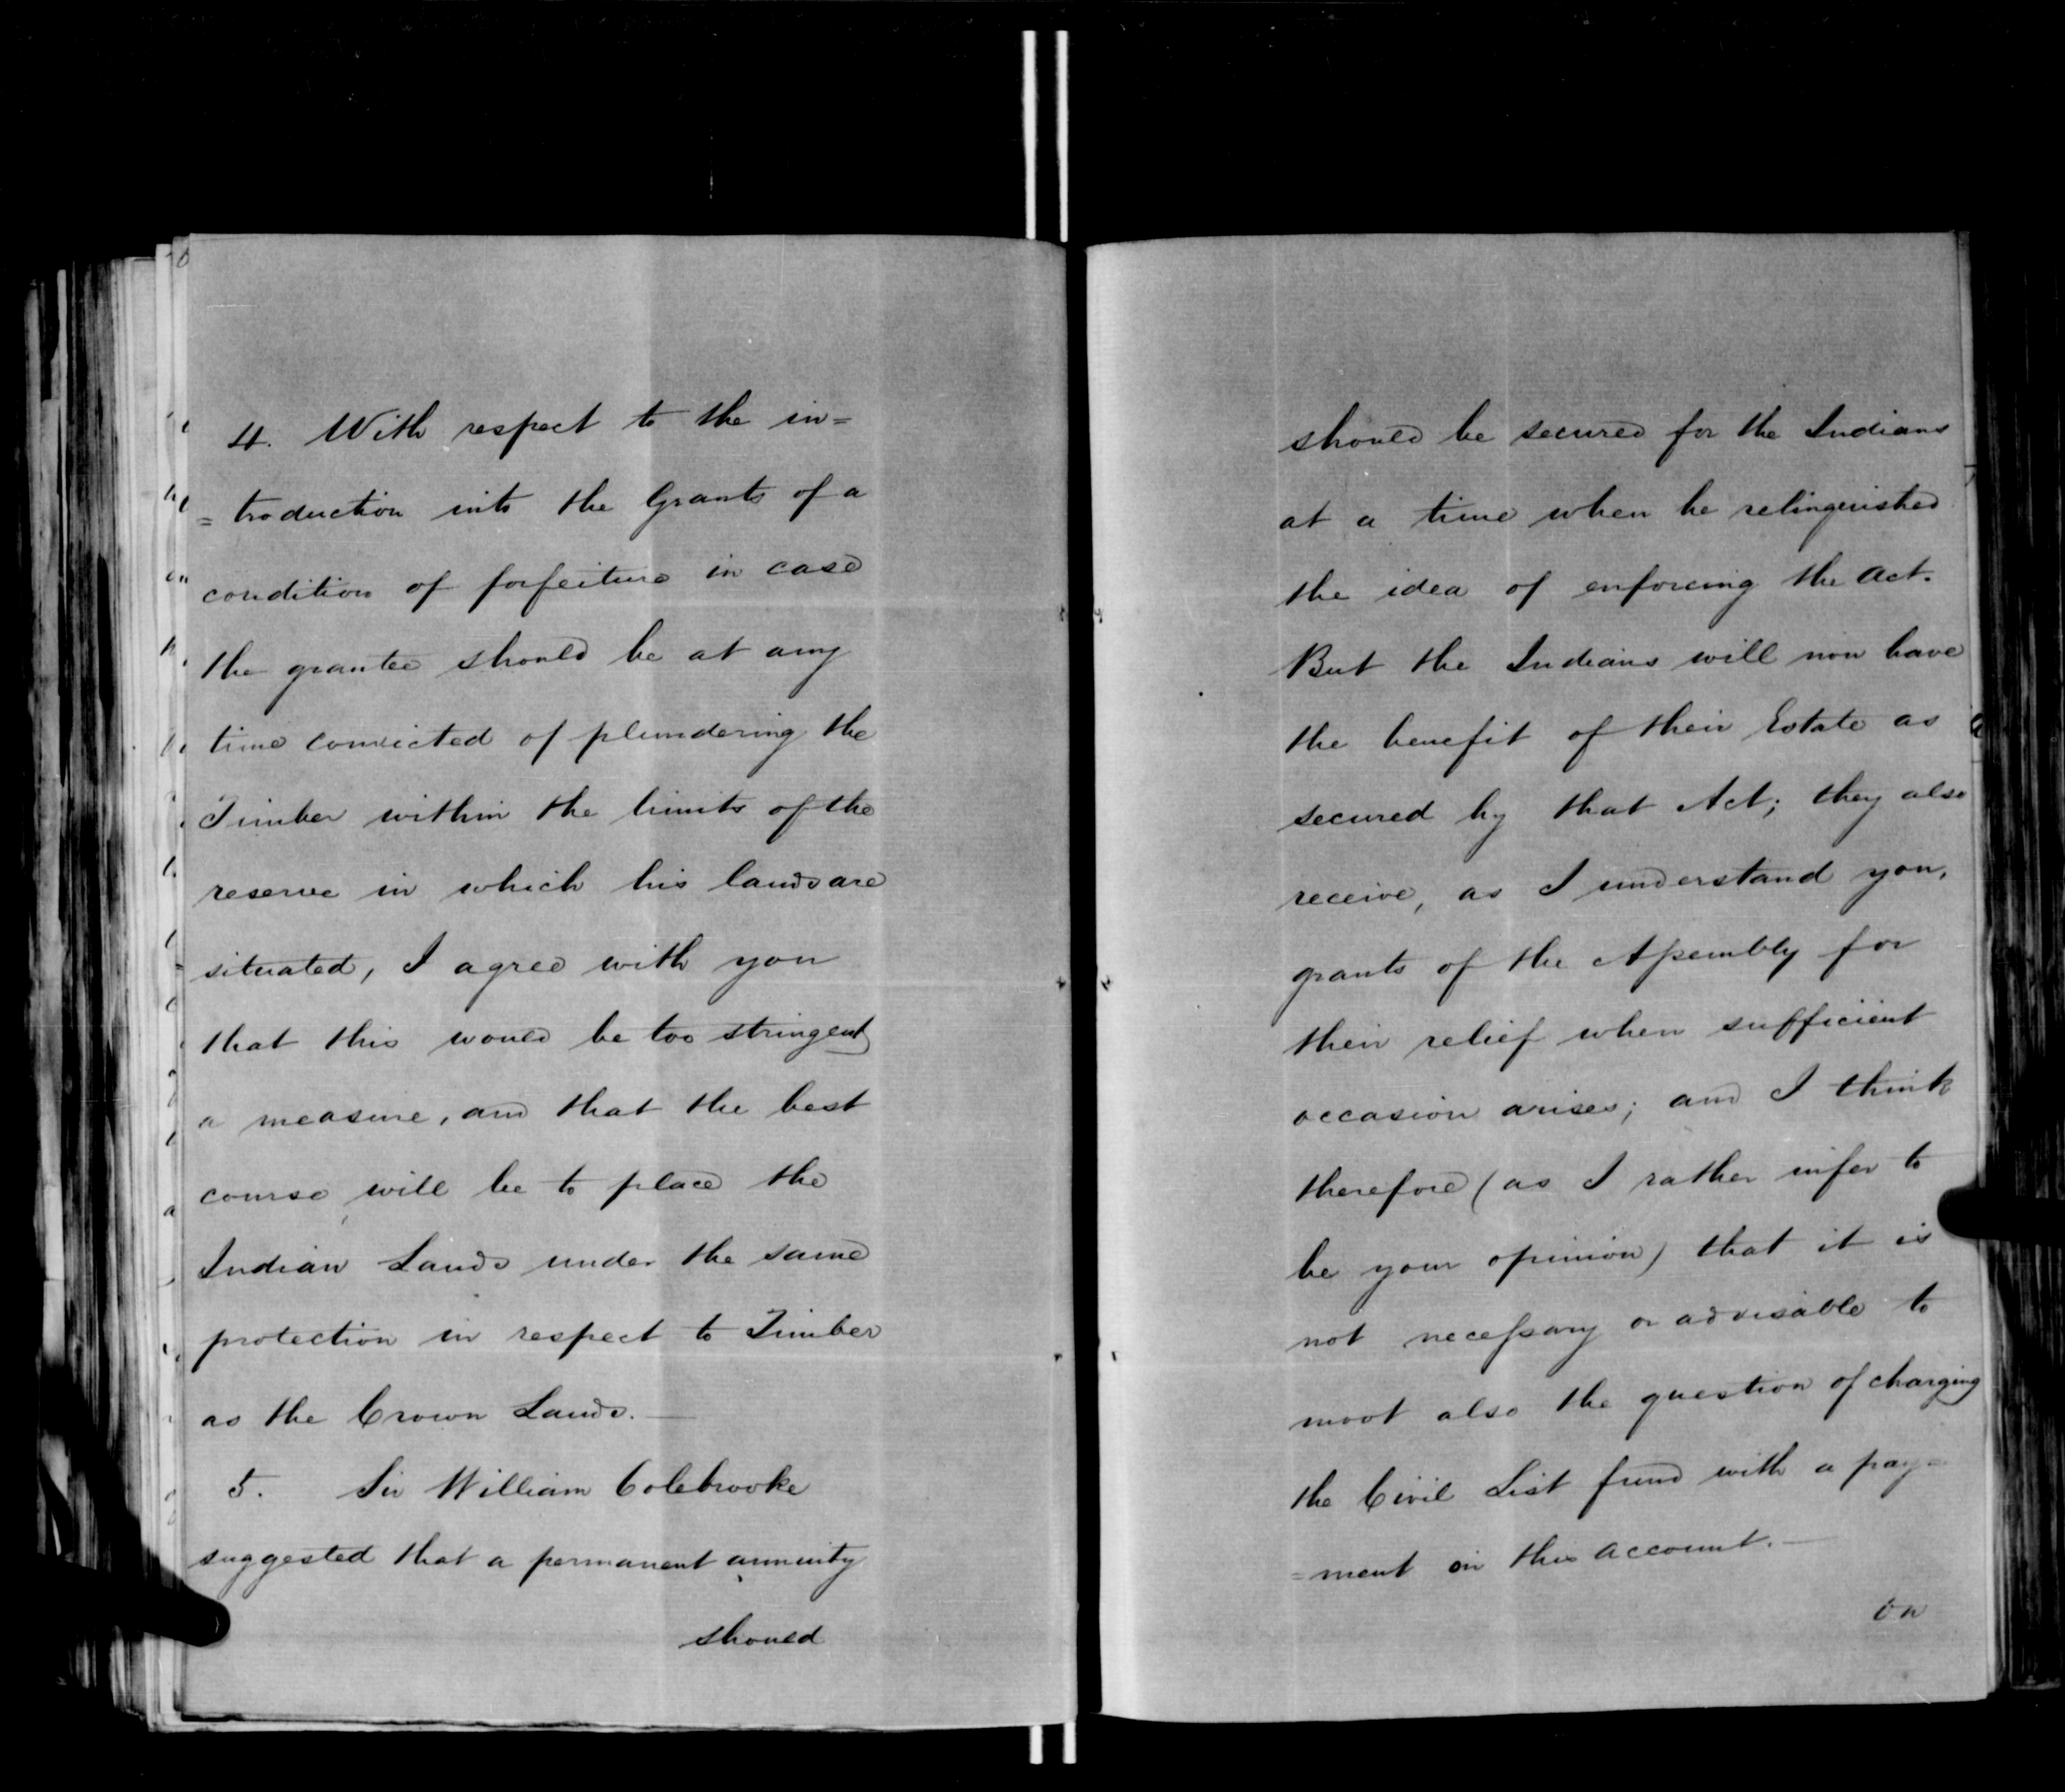 4. With respect to the in=
=troduction into the Grants of a
condition of forfeiture in case
the grantee should be at any
time convicted of plundering the
Timber within the limits of the
reserve in which his lands are
situated, I agree with you
that this would be too stringent
a measure, and that the best
course will be to place the
Indian Lands under the same
protection in respect to Timber
as the Crown Lands.—
5. Sir William Colebrooke
suggested that a permanent annuity
should
should be secured for the Indians
at a time when he relinquished
the idea of enforcing the Act.
But the Indians will now have
the benefit of their Estate as
secured by that Act; they also
receive, as I understand you,
grants of the Assembly for
their relief when sufficient
occasion arises; and I think
therefore (as I rather infer to
be your opinion) that it is
not necessary or advisable to
moot also the question of charging
the Civil List fund with a pay=
=ment on this account.—
On